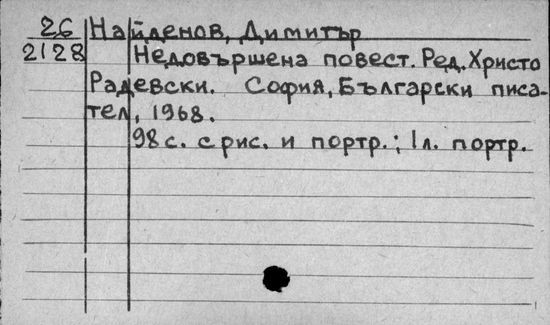 26 Найденов, Димитър
2128 Недовършена повест. Ред. Христо
Радевски. София, Български писа-
тел, 1968.
98 с. с рис. и портр.; 1 л. портр.